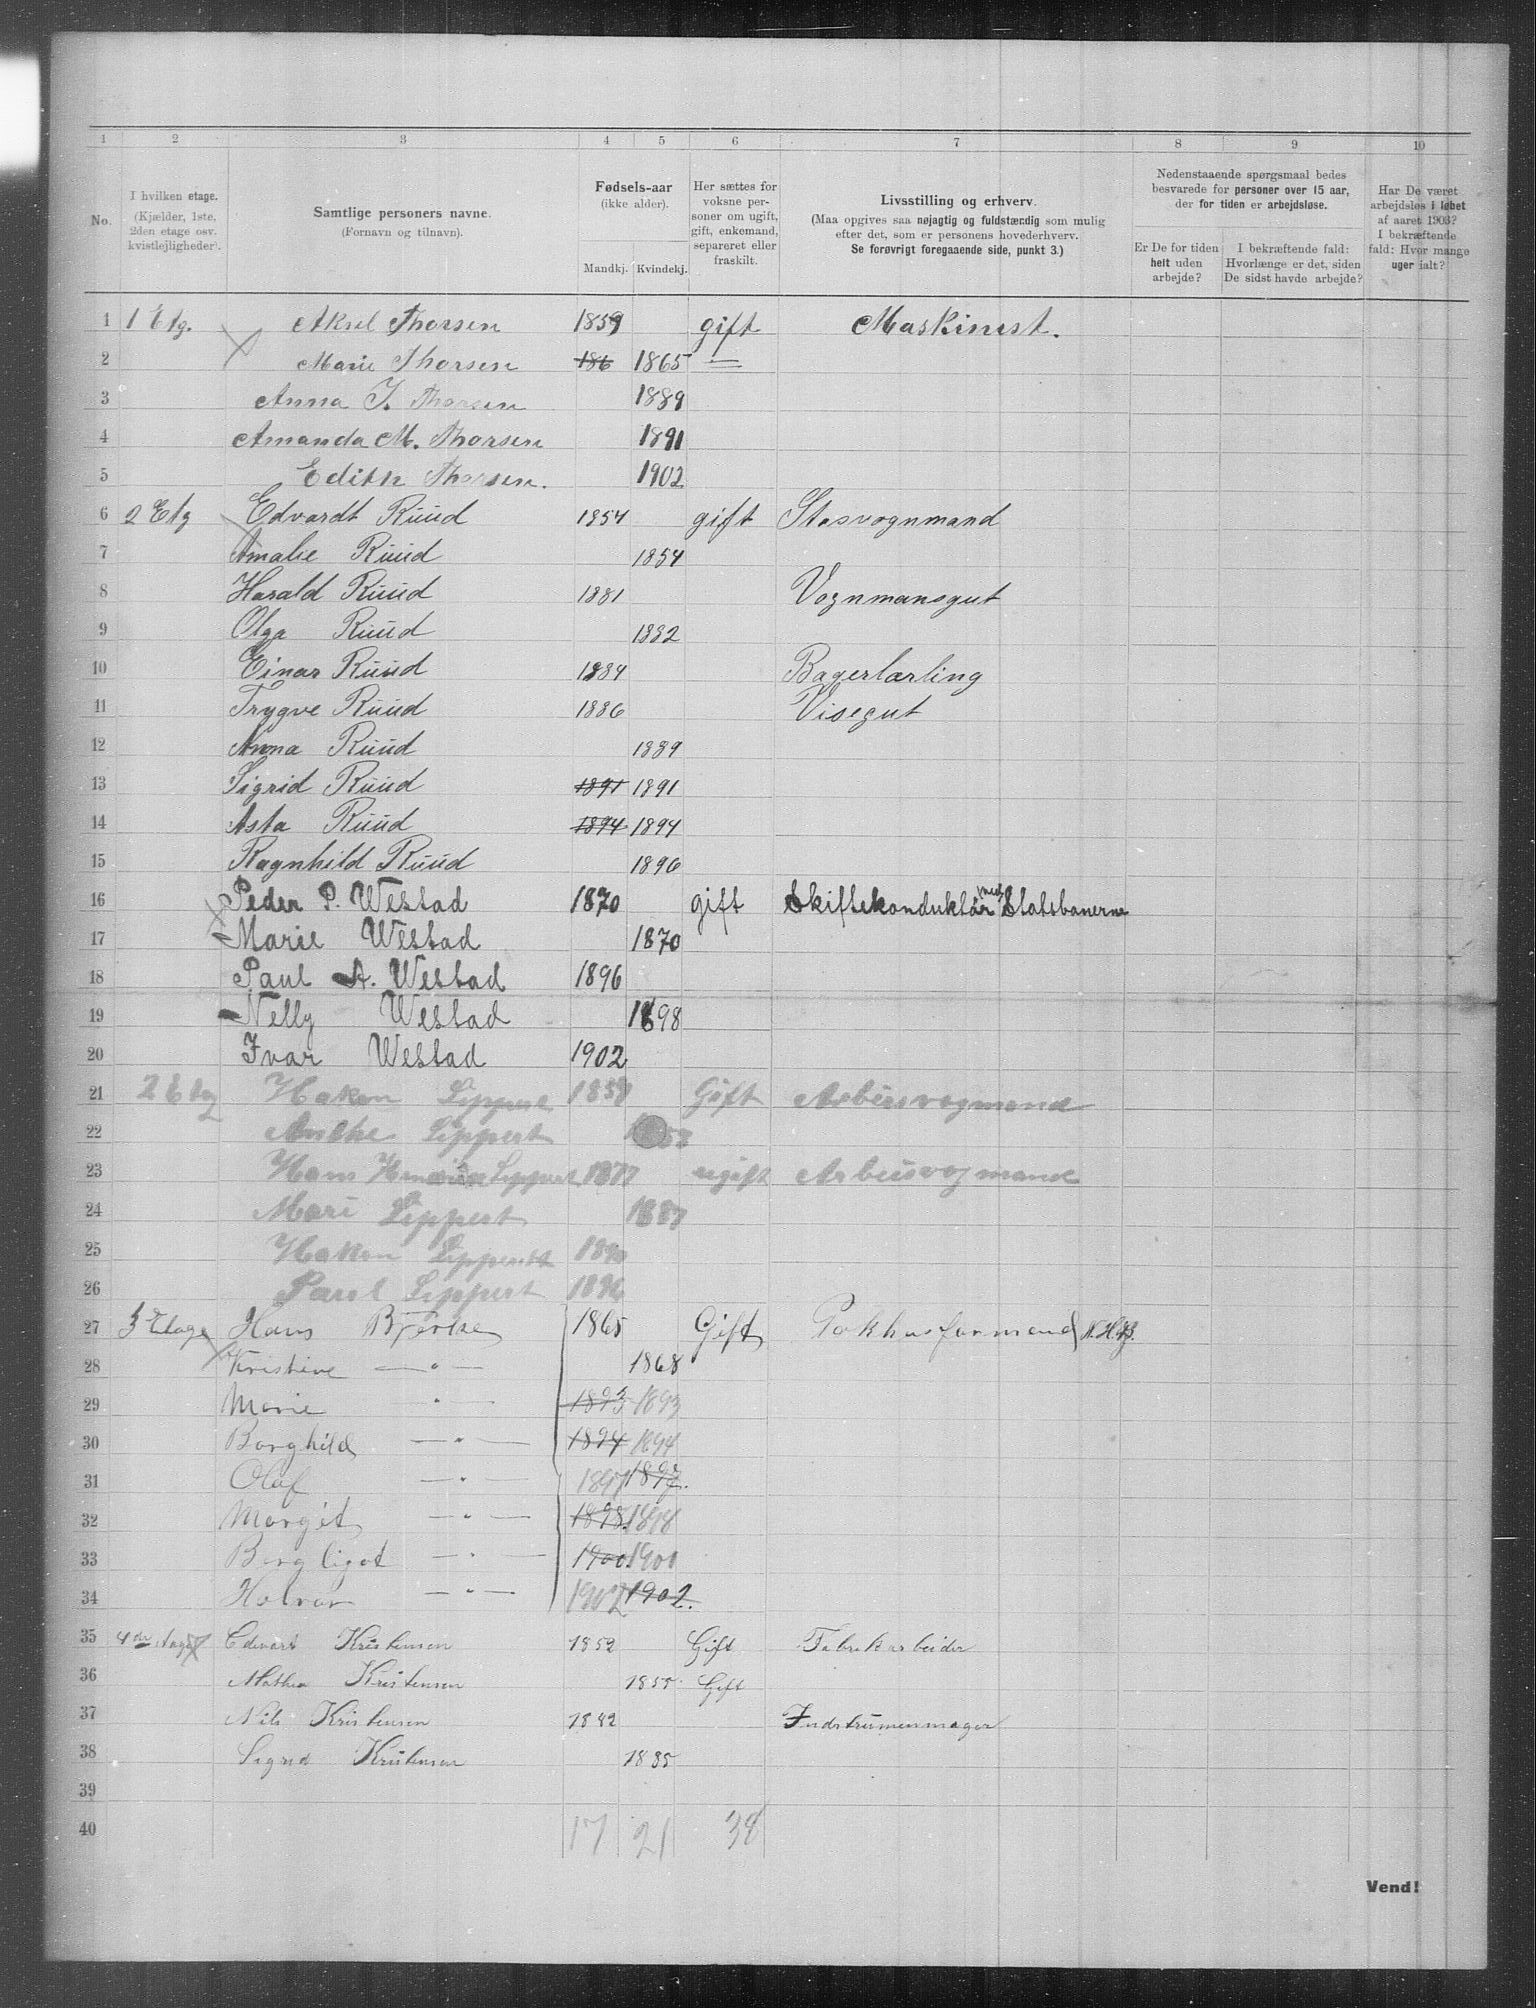 1 2 3 4 5 6 7 8 9 10
No.
I hvilken etage.
(Kjælder, 1ste,
2den etage osv.
kvistlejligheder).
Samtlige personers navne.
(Fornavn og tilnavn).
Fødsels-aar
(ikke alder).
Mandkj. Kvindekj.
Her sættes for
voksne per-
soner om ugift,
gift, enkemand,
separeret eller
fraskilt.
Livsstilling og erhverv.
(Maa opgives saa nøjagtig og fuldstændig som mulig
efter det, som er personens hovederhverv.
Se forøvrigt foregaaende side, punkt 3.)
Nedenstaaende spørgsmaal bedes
besvarede for personer over 15 aar,
der for tiden er arbejdsløse.
Er De for tiden
helt uden
arbejde?
I bekræftende fald:
Hvorlænge er det, siden
De sidst havde arbejde?
Har De været
arbejdsløs i løbet
af aaret 1903?
I bekræftende
fald: Hvor mange
uger ialt?
1 1 Etg. Aksel Thorsen 1859 gift Maskinist.
2 Marie Thorsen 186 1865 —
3 Anna J. Thorsen 1889
4 Amanda M. Thorsen 1891
5 Edith Thorsen. 1902
6 2 Etg Edvardt Ruud 1854 gift Stasvognmand
7 Amalie Ruud 1854
8 Harald Ruud 1881 Vognmansgut
9 Olga Ruud 1882
10 Einar Ruud 1884 Bagerlærling
11 Trygve Ruud 1886 Visegut
12 Anna Ruud 1889
13 Sigrid Ruud 1891 1891
14 Asta Ruud 1894 1894
15 Ragnhild Ruud 1896
16 Peder P. Westad 1870 gift Skiftekonduktør ved Statsbanerne
17 Marie Westad 1870
18 Paul A. Westad 1896
19 Nelly Westad 1898
20 Ivar Westad 1902
21 2 Etg Hakon Lippert 1858 Gift Arbeisvogmand
22 Lippert
23 Hans Lippert 1877 ugift Arbeisvogmand
24 Mari Lippert 1887
25 Hakon Lippert 1890
26 Paul Lippert 1896
27 3 Etage Hans Bjerke 1865 Gift Pakhusformand N.H.B.
28 Kristine — " — 1868
29 Marie " — 1893 1893
30 Borghild — " — 1894 1894
31 Olaf — " — 1897 1897.
32 Margit — " — 1898. 1898
33 Bergligot — " — 1900. 1900
34 Halvor — " — 1902 1902.
35 4de Etage Edvart Kristensen 1852 Gift Fabrikarbeider
36 Mathea Kristensen 1855 Gift
37 Nils Kristensen 1882 Indstrumenmager
38 Sigrid Kristensen 1885
39
40 17 21 38
Vend!